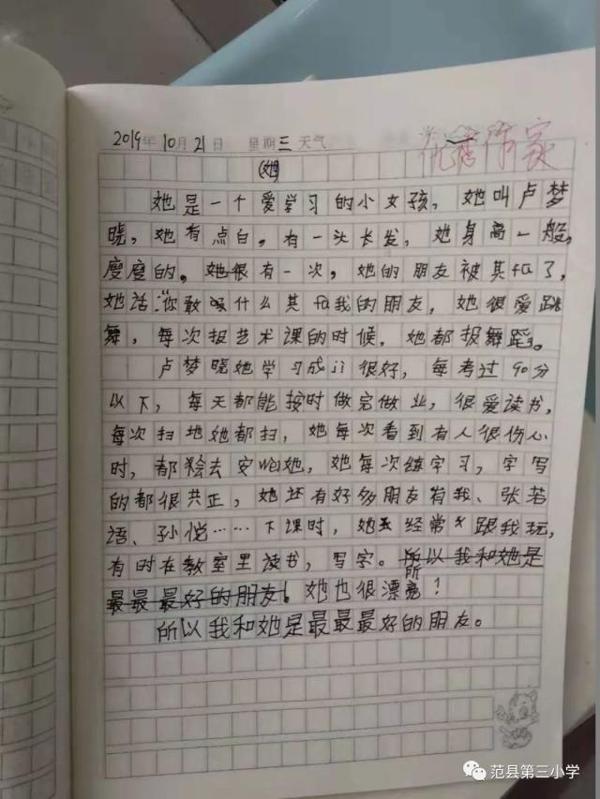 2019年10月21日 星期三 天气
优秀作家
《她》
她是一个爱学习的小女孩，她叫卢梦
晓，她有点白，有一头长发，她身高一般，
麼麼的。她很有一次，她的朋友被其fu了，
她话：“你敢吸什么其fu我的朋友，她很爱跳
舞，每次报艺术课的时候，她都报舞蹈。
卢梦晓她学习成ji很好，每考过90分
以下，每天都能按时做完做业，很爱读书，
每次扫地她都扫，她每次看到有人很伤心
时，都会去安她，她每次练字习，字写
的都很共正，她还有好多朋友有我、张若
语、孙悦……下课时，她经常跟我玩，
有时在教室里读书，写字。所以我和她是
最最最好的朋友！她也很漂亮！
所以我和她是最最最好的朋友。
范县第三小学